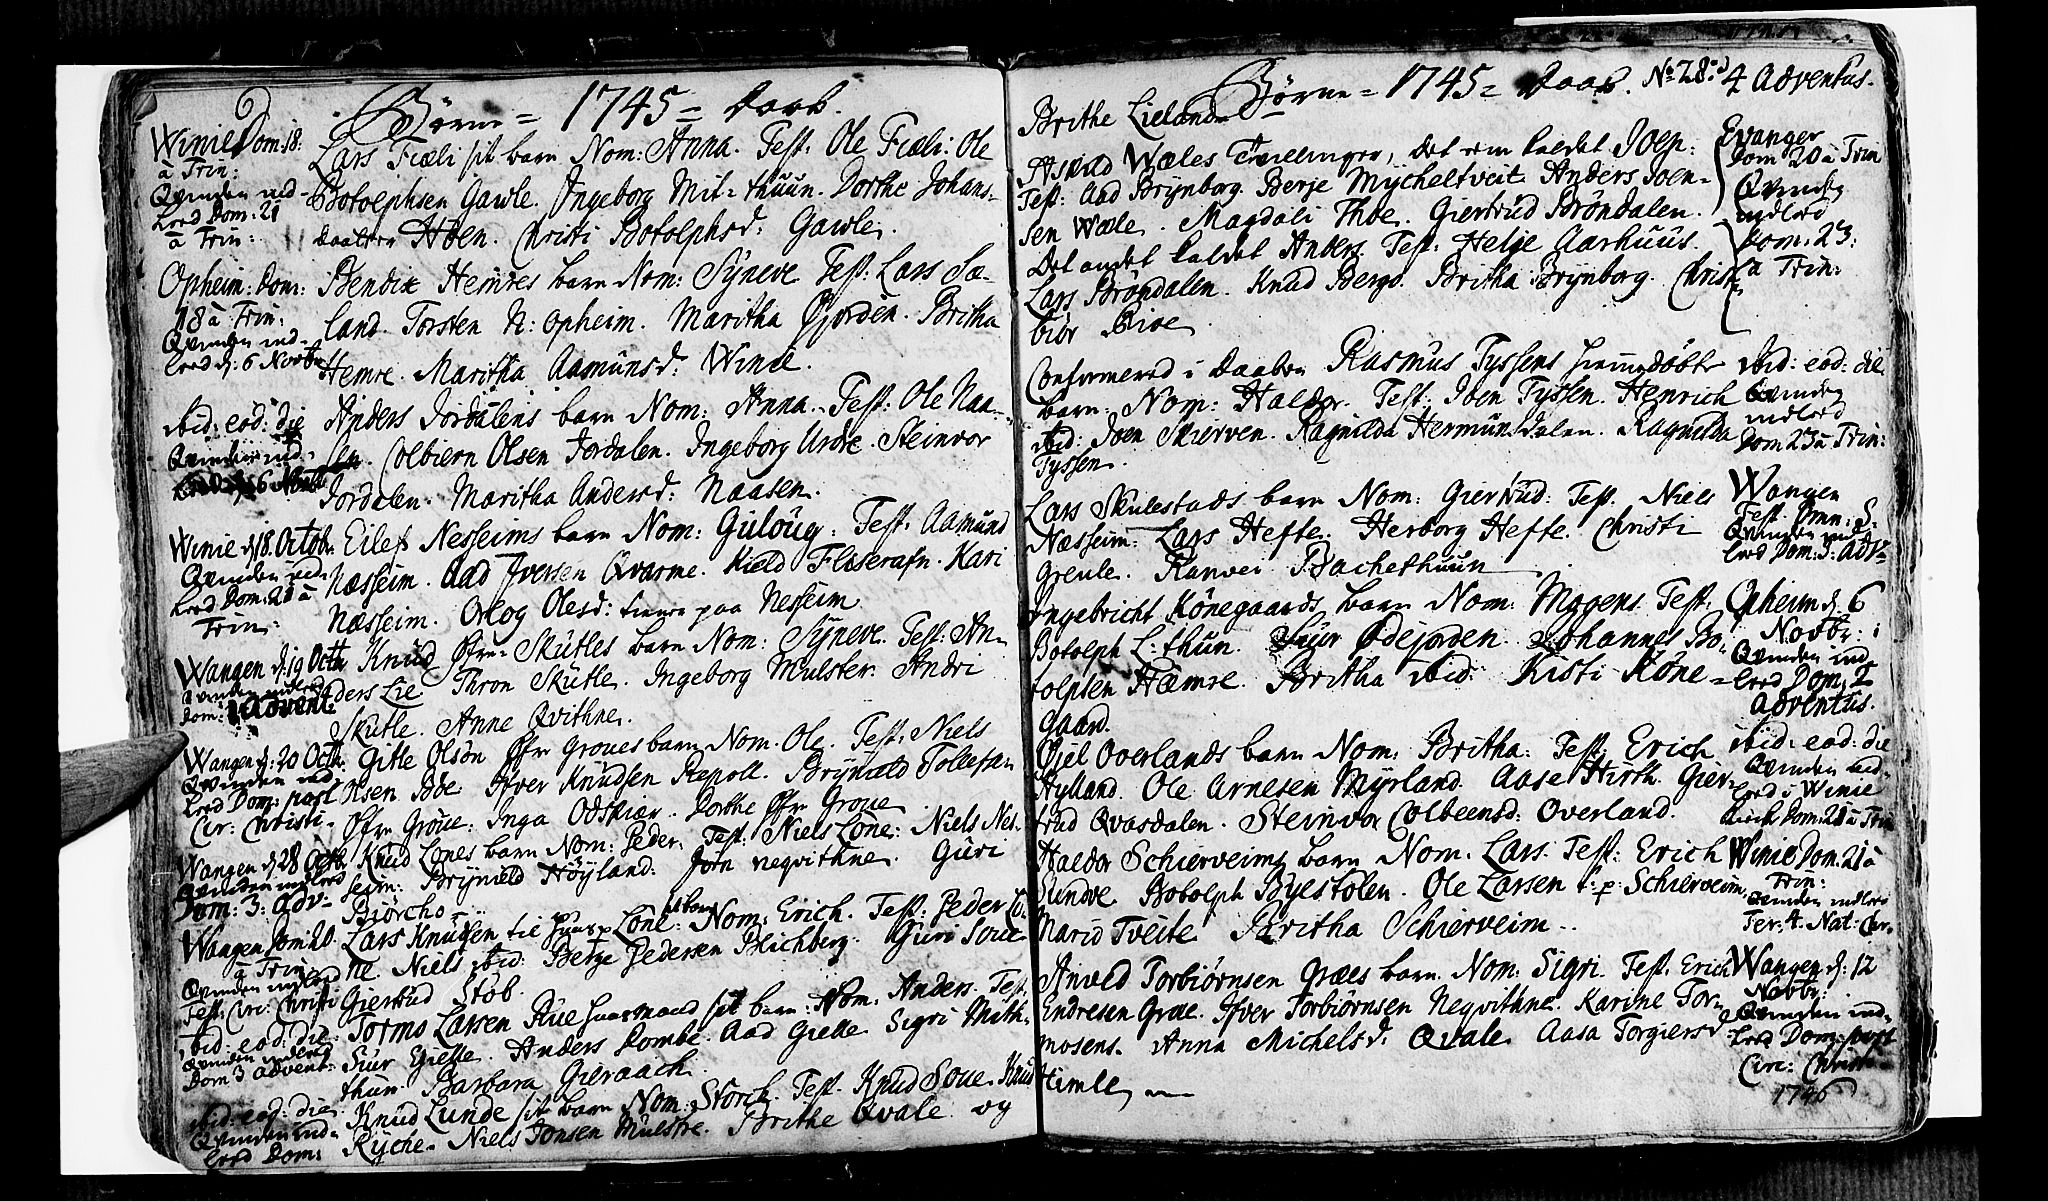 Børne = 1745 = Daab.
Winie Dom: 18:
à Trin:
Qvinden ind-
leed Dom: 21
à Trin:
Lars Fiæli sit barn Nom: Anna. Test: Ole Fiæli. Ole
Botolphsen Gawle. Ingeborg Mit-thuun. Dorthe Johans-
daatter Høen. Christi Botolphsd: Gawle.
Opheim: Dom:
18 à Trin:
Qvinden ind-
leed d: 6 Novbr
Bendix Hemres barn Nom: Syneve. Test: Lars Sæ-
land. Torsten N: Opheim. Maritha Gjorden. Britha
Hemre. Maritha Aamunsd: Winie.
ibid: eod: die
Qvinden ind-
Anders Jordalens barn Nom: Anna. Test: Ole Naa-
sen. Colbiern Olsen Jordalen. Ingeborg Urdre. Steinvor
Jordalen. Maritha Andersd: Naasen.
Winie d: 18. Octob:
Qvinden ind-
leed Dom: 21 à
Trin:
Eilef Nesseims barn Nom: Guloug. Test: Aamund
Næsseim. Aad Iversen Qvarme. Kield Flæserafn. Kari
Næsseim. Orlog Olesd: tienner paa Nesseim
Wangen d: 19 Octbr
Qvinden indleed
Dom: 1 Advent.
Knud Øfre- Skutles barn Nom: Syneve. Test: An-
ders Lie Thron Skutle. Ingeborg Mulster. Andri
Skutle. Anne Qvithne.
Wangen d: 20 Octb.
Qvinden ind-
leed Dom: post
Cir: Christi
Gitle Olsøn Øfre Groues barn Nom. Ole. Test: Niels
Olsen Bøe Ifver Knudsen Repoll. Brynield Tollefsen
Øfre Groue. Inga Odskiær. Dorthe Øfre Groue
Wangen d: 28 Octb.
Qvinden indleed
Dom: 3: Adv-
Knud Lønes barn Nom: Peder. Test: Niels Løne. Niels Nes-
seim: Brynield Høyland. Jørn Neqvithne. Guri
Biørcho
Wangen Dom: 20.
à Trin
Qvinden indleed
Fest: Circ: Christi
Lars Knudsen til huus p: Løne sit barn Nom: Erich. Test: Peder Lø-
ne. Niels ibid: Berge Pedersen Blichberg. Guri Soue
Giertrud Stob.
ibid: eod: die:
Qvinden indleed
Dom 3 Advent:
Tormo Larsen Rue huusmand sit barn: Nom: Anders. Test
Siur Gielle. Anders Dombe. Aad Gielle Sigri Mith-
thun. Barbara Gieraach.
ibid: eod: die
Qvinden ind-
leed Dom:
Knud Lunde sit barn Nom: Storck. Test. Knud Soue. Knud
Ryche. Niels Jonsen Mulstre. Brithe Qvale og
Børne = 1745 = Daab. No 28: d 4 Adventus.
Brithe Lieland
Askild Wæles Tvillinger, det eene kaldet Joen:
Test: Aad Brynborg. Berje Mycheltveit. Anders Joen-
sen Wæle. Magdali Thoe. Giertrud Brøndalen.
Det andet kaldet Anders. Test: Helje Aarhuus.
Lars Brøndalen. Knud Bergo. Britha Brynborg. Christ-
biør Bioe
Evanger
Dom 20 à Trin
Qvinden
indleed
Dom: 23:
à Trin:
Confirmered i Daaben Rasmus Tyssens hiemdøbte
barn: Nom: Haldor. Test: Joen Tyssen. Henrich
ibid: Joen Skierven. Ragnilda Hermunsdalen. Ragnilda
Tyssen.
ibid: eod: die
Qvinden
indleed
Dom 23 à Trin:
Lars Skulestads barn Nom: Giertrud: Test. Niels
Næsseim. Lars Hefte. Herborg Hefte. Christi
Greule. Ranvei Bachethuun
Wangen
Fest: Omn: S:
Qvinden ind-
leed Dom: 3: Adv-
Ingebricht Kønegaards barn Nom: Mogens. Test:
Botolph L: thun. Siur Ødejorden. Johannes Bo-
tolphsen Hæmre. Britha ibid: Kisti Køne-
gaard.
Opheim d: 6
Novbr:
Qvinden ind-
leed Dom: 2
Adventus.
Øjel Overlands barn Nom: Britha: Test: Erich
Hylland. Ole Arnesen Myrland. Aase Hirth. Gier-
trud Qvasdalen. Steinvor Colbeensd: Overland.
ibid: eod: die
Qvinden ind-
leed i Winie
Kirche Dom: 21 à Trin
Haldor Schierveims barn Nom. Lars. Test: Erich
Sundve Botolph Byestølen. Ole Larsen t: p: Schierveim.
Marie Tveite Britha Schierveim.
Winie Dom. 21 à
Trin:
Qvinden indleed
Fer: 4. Nat: Chr-
Anved Torbiørnsen Græes barn. Nom: Sigri. Test: Erich
Endresen Græe. Ifver Torbiørnsen Neqvithne. Karine Tor-
mosens. Anna Michelsd: Qvale. Aasa Torgiersd
Himle
Wangen d: 12
Novbr:
Qvinden ind-
leed Dom: post
Circ: Christi
1746